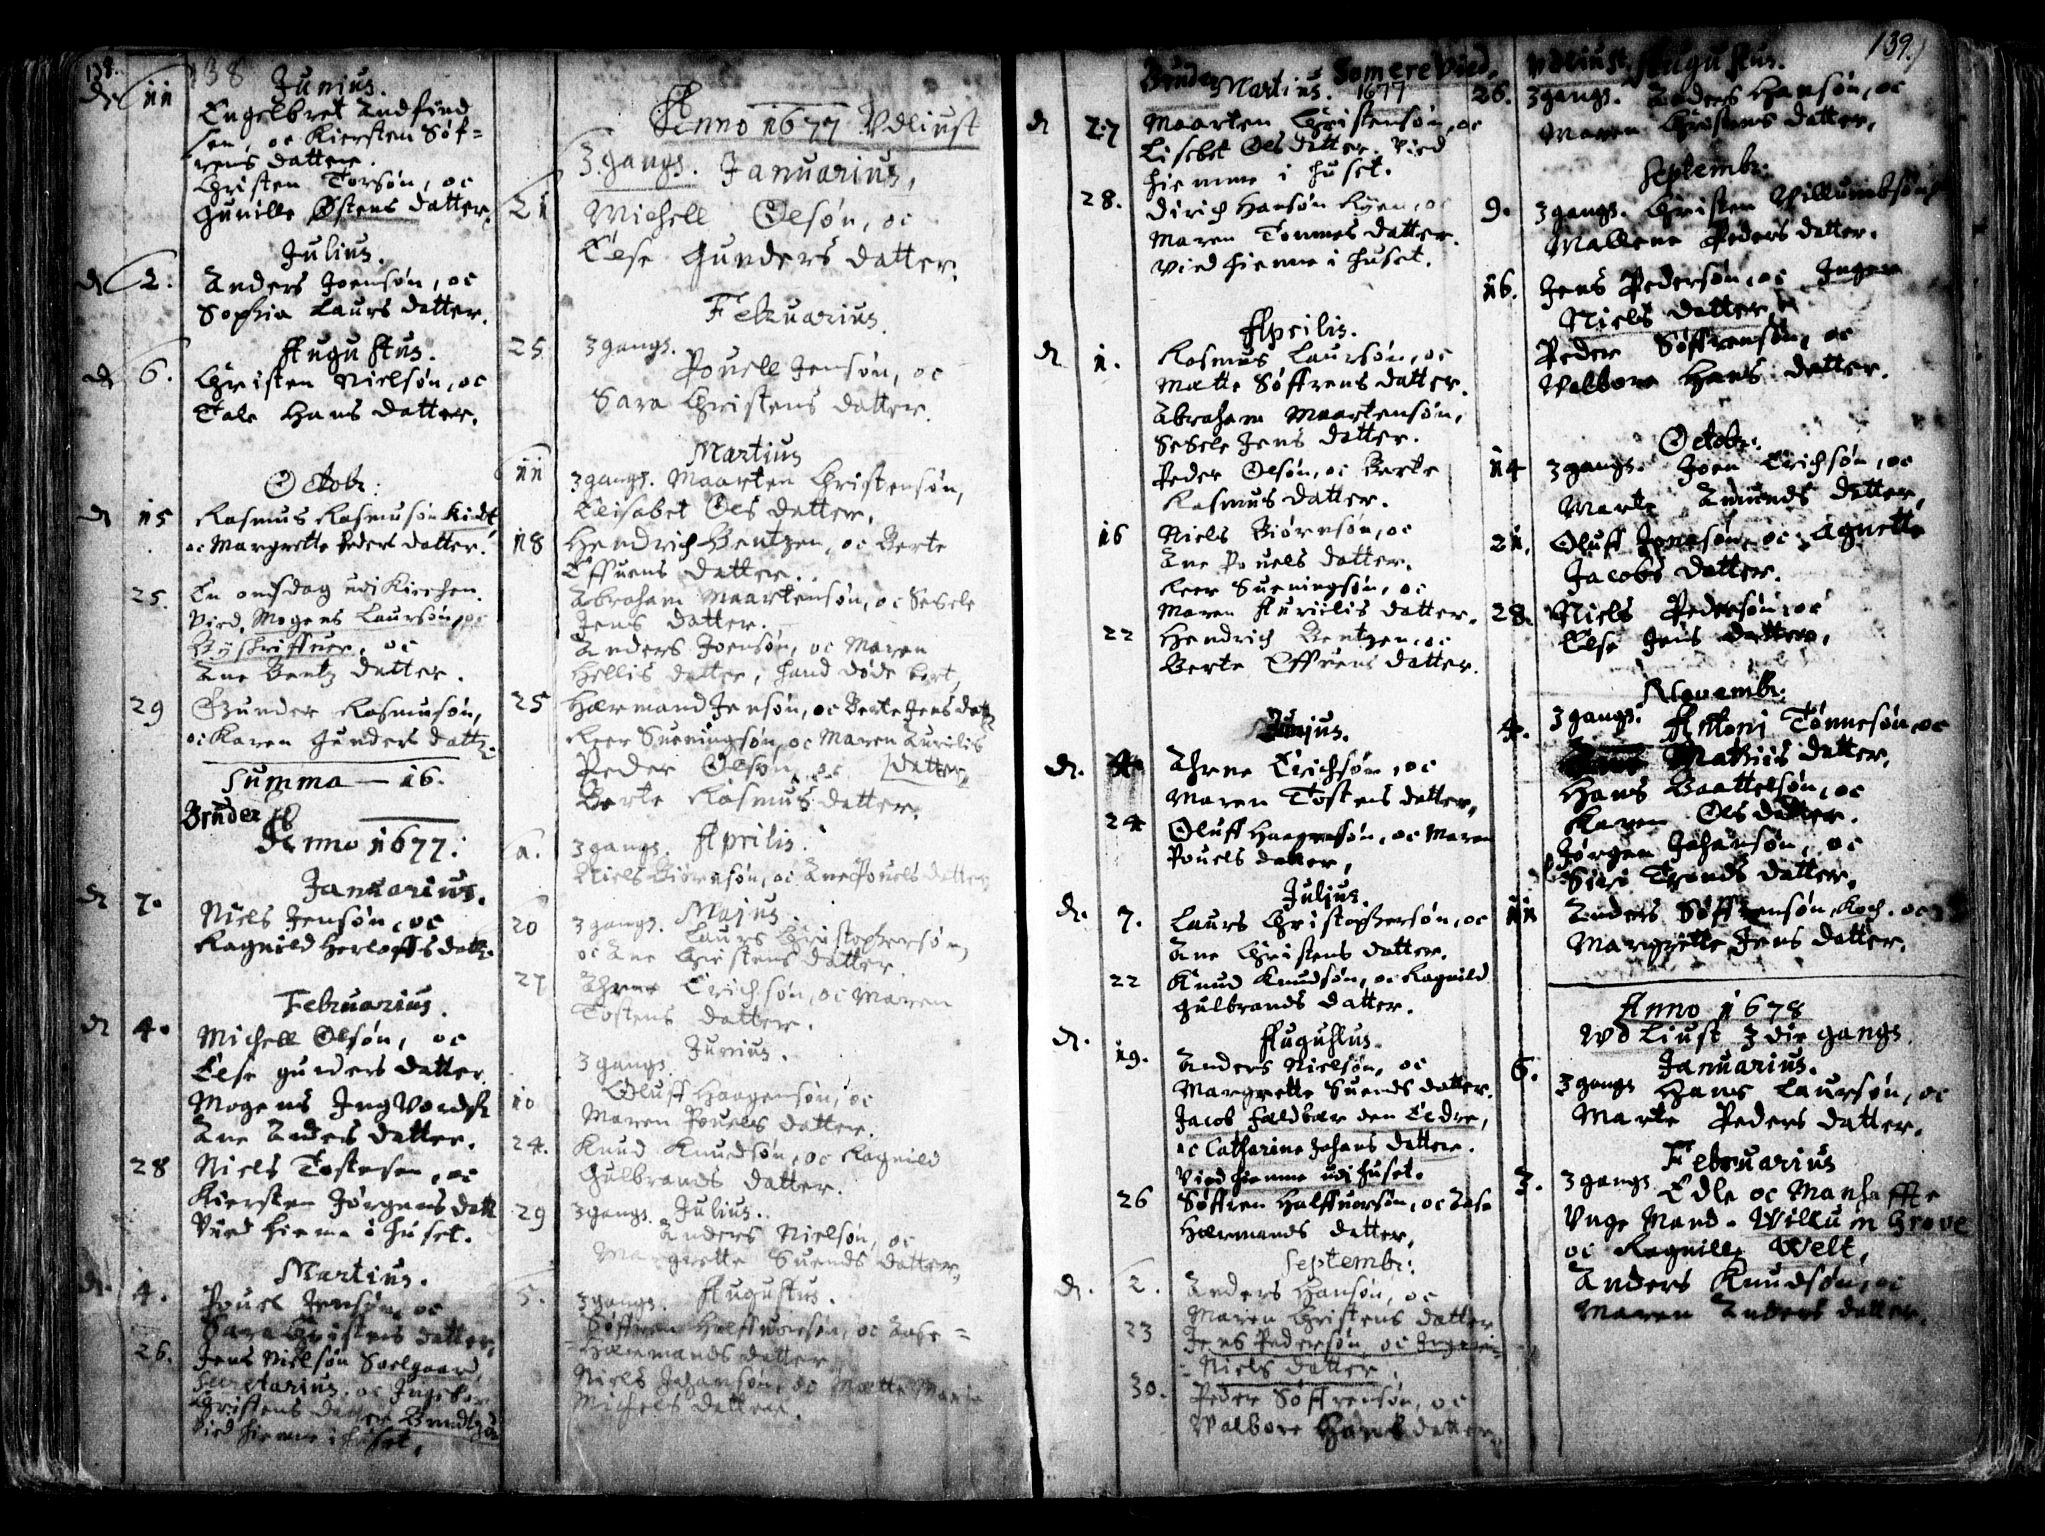 138. 138
Junius.
D 11 Engelbret Andfind
sen, oc Kiersten Søf=
rens datter.
Christen Torsøn, oc
Gunille Østens datter.
Julius.
D 2. Anders Joensøn, oc
Sophia Laurs datter.
Augustus.
D 6. Christen Nielsøn, oc
Tale Hans datter.
Octobr:
D 15 Rasmus Rasmusøn Kidt
oc Margrette Peders datter.
25. En onsdag udi Kirchen.
Vied, Mogens Laursøn, oc
Byskriffuer, oc
Ane Bentz datter.
29 Gunder Rasmusøn,
oc Karen Gunders datt.
Summa — 16.
Bruder
Anno 1677.
Januarius.
D 7. Niels Jensøn, oc
Ragnild Herloffs datt.
Februarius.
D 4. Michell Olsøn, oc
Else gunders datter.
Mogens Ingvordsø
Ane Anders datter.
28 Niels Tostensen, oc
Kiersten Jørgens datt
Vied hieme i huset.
Martius.
D. 4. Pouel Jensøn, oc
Sara Christens datter,
26. Jens Nielsøn Soelgaard,
Secretarius. oc Ingebor
Christens datter
Vied hieme i huset,
Anno 1677 Vdliust
3. gangs. Januarius,
21 Michell Olsøn, oc
Else Gunders datter.
Februarius.
25 3 gangs.
Pouell Jensøn, oc
Sara Christens datter.
Martius
11 3 gangs. Maarten Christensøn,
Elisabet Ols datter.
18 Hendrich Bentzen, oc Berte
Effuens datter.
Abraham Maartensøn, oc Sebele
Jens datter.
Anders Joensøn, oc Maren
Hellis datter, hand døde bort,
25 Hermand Jensøn, oc Berte Jens datt
Reer Sueningsøn, oc Maren Aurilis
Peder Olsøn, oc [datter,
Berte Rasmus datter.
1. 3 gangs. Aprilis.
Niels Biørnsøn, oc Ane Pouels datter
Majus.
20 3 gangs. Laurs Christophersøn,
oc Ane Christens datter.
27 Ahrne Erichsøn, oc Maren
Tostens datter.
Junius.
3 gangs.
10 Oluff Haagensøn, oc
Maren Pouels datter.
24. Knud Knudsøn, oc Ragnild
Gulbrands datter.
29 3 gangs. Julius.
Anders Nielsøn, oc
Margrette Suends datter,
5. 3 gangs. Augustus.
Søffren Halffuorsøn, oc Aase =
= Hermands datter
Niels Johansøn, oc Mætte Marie
Michels datter.
Bruder Somere Vied.
Martius. 1677
D 27 Maarten Christensøn, oc
Lisebet Ols datter. Vied
hiemme i huset.
28. Dirich Hansøn Ryen, oc
Maren Tommes datter.
Vied hieme i huset.
Aprilis.
D 1. Rasmus Laursøn, oc
Mætte Søffrens datter.
Abraham Maartensøn,
Sebele Jens datter.
Peder Olsøn, oc Berte
Rasmus datter.
16 Niels Biørnsøn, oc
Ane Pouels datter.
Reer Sueningsøn, oc
Maren Aurielis datter.
22 Hendrich Bentzen, oc
Berte Effuens datter.
Junjus.
D. 4. Ahrne Erichsøn, oc
Maren Tostens datter,
24 Oluff Haagensøn, oc Maren
Pouels datter,
Julius.
D. 7. Laurs Christophersøn, oc
Ane Christens datter.
22 Knud Knudsøn, oc Ragnild
Gulbrands datter.
Augustus.
D. 19. Anders Nielsøn, oc
Margrette Suends datter.
Jacob Faldbær den Eldre,
oc Catharine Johans datter.
Vied hiemme udi huset.
26 Søffren Halffuorsøn, oc Aase
Hermands datter,
Septembr:
D. 2. Anders Hansøn, oc
Maren Christens datter
23 Jens Pedersøn, oc
= Niels datter.
30. Peder Søffrensøn, oc
Walbore Hans datter.
139.
Vdliust. Augustus.
26. 3 gangs. Anders Hansøn, oc
Maren Christens datter,
Septembr:
9. 3 gangs. Christen Willumbsøn
Mallene Peders datter.
16. Jens Pedersøn, oc Inger
Niels datter,
Peder Søffrensøn, oc
Walbore Hans datter.
Octobr:
14 3 gangs. Joen Erichsøn, oc
Marte Amunds datter,
21. Oluff Jonasøn, oc Agnette
Jacobs datter.
28. Niels Pedersøn, oc
Else Jens datter,
Novembr.
4. 3 gangs. Antoni Tønnesøn, oc
Mathiis datter,
Hans Baattelsøn, oc
Karen Ols datter.
Jørgen Johansøn, oc
Siri Tronds datter.
11 Anders Søffrensøn Koch. oc
Margrette Jens datter.
Anno 1678
Vdliust 3 die gangs.
Januarius.
6. 3 gangs Hans Laursøn, oc
Marte Peders datter.
Februarius
3. 3 gangs Edle oc Manhaffte
Unge Mand. Willum Grove
oc Ragnille Welt,
Anders Knudsøn, oc
Maren Anders datter.